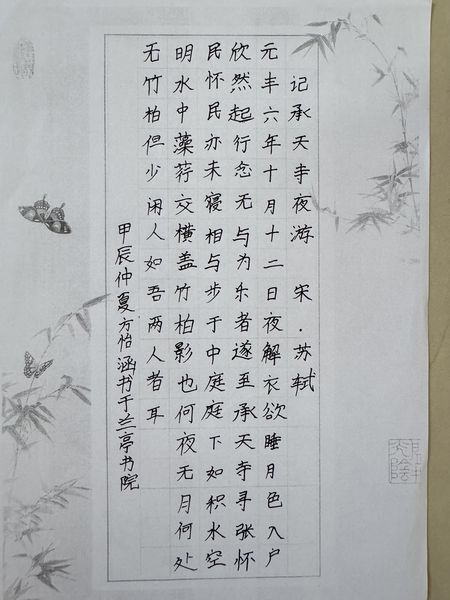 记承天寺夜游 宋·苏轼
元丰六年十月十二日夜解衣欲睡月色入户
欣然起行念无与为乐者遂至承天寺寻张怀
民怀民亦未寝相与步于中庭庭下如积水空
明水中藻荇交横盖竹柏影也何夜无月何处
无竹柏但少闲人如吾两人者耳
甲辰仲夏方怡涵书于兰亭书院